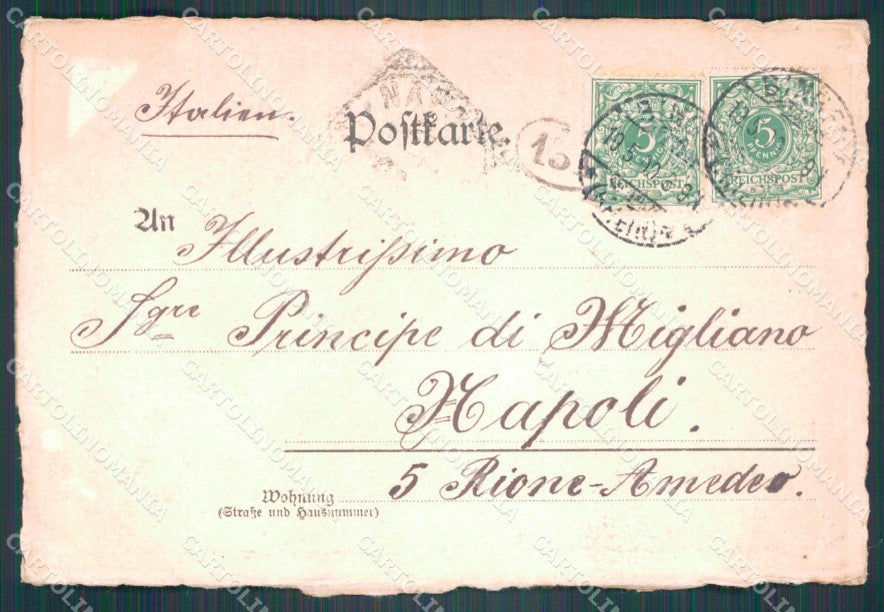 Italien.
Postkarte.
15
5
PFENNIG
REICHSPOST
5
PFENNIG
REICHSPOST
An Illustrissimo
Sgre Principe di Migliano
Napoli.
5 Rione-Amedeo.
Wohnung
(Straße und Hausnummer)
CARTOLINOMANIA